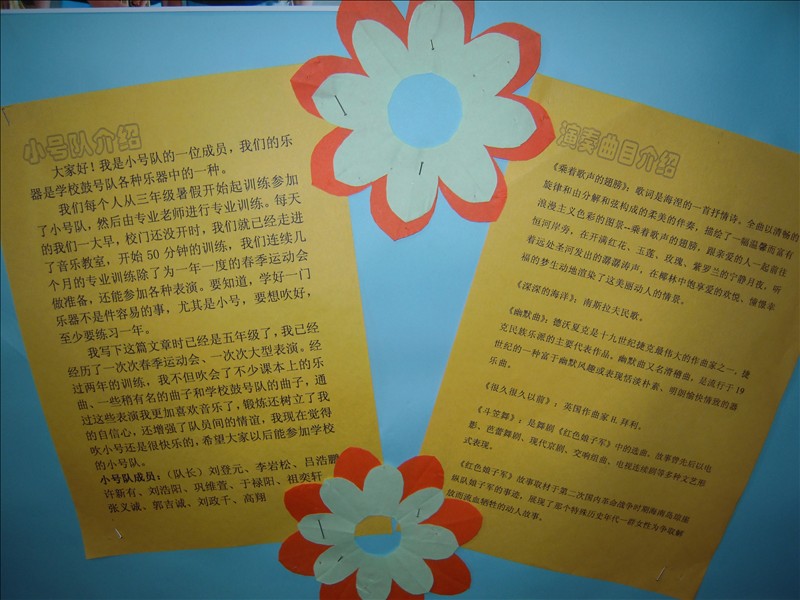 小号队介绍
大家好！我是小号队的一位成员，我们的乐
器是学校鼓号队各种乐器中的一种。
我们每个人从三年级暑假开始起训练参加
了小号队，然后由专业老师进行专业训练。每天
的我们一大早，校门还没开时，我们就已经走进
了音乐教室，开始50分钟的训练，我们连续几
个月的专业训练除了为一年一度的春季运动会
做准备，还能参加各种表演。要知道，学好一门
乐器不是件容易的事，尤其是小号，要想吹好，
至少要练习一年。
我写下这篇文章时已经是五年级了，我已经
经历了一次次春季运动会、一次次大型表演。经
过两年的训练，我不但吹会了不少课本上的乐
曲、一些稍有名的曲子和学校鼓号队的曲子，通
过这些表演我更加喜欢音乐了，锻炼还树立了我
的自信心，还增强了队员间的情谊，我现在觉得
吹小号还是很快乐的，希望大家以后能参加学校
的小号队。
小号队成员：（队长）刘登元、李岩松、吕浩鹏
许新有、刘浩阳、巩维萱、于禄阳、祖奕轩
张义诚、郭吉诚、刘政千、高翔
演奏曲目介绍
《乘着歌声的翅膀》：歌词是海涅的一首抒情诗。全曲以清畅的
旋律和由分解和弦构成的柔美的伴奏，描绘了一幅温馨而富有
浪漫主义色彩的图景--乘着歌声的翅膀，跟亲爱的人一起前往
恒河岸旁，在开满红花、玉莲、玫瑰、紫罗兰的宁静月夜，听
着远处圣河发出的潺潺涛声，在椰林中饱享爱的欢悦、憧憬幸
福的梦生动地渲染了这美丽动人的情景。
《深深的海洋》：南斯拉夫民歌。
《幽默曲》：德沃夏克是十九世纪捷克最伟大的作曲家之一、捷
克民族乐派的主要代表作品。幽默曲又名滑稽曲，是流行于19
世纪的一种富于幽默风趣或表现恬淡朴素、明朗愉快情致的器
乐曲。
《很久很久以前》：英国作曲家H.拜利。
《斗笠舞》：是舞剧《红色娘子军》中的选曲。故事曾先后以电
影、芭蕾舞剧、现代京剧、交响组曲、电视连续剧等多种文艺形
式表现。
《红色娘子军》故事取材于第二次国内革命战争时期海南岛琼崖
纵队娘子军的事迹。展现了那个特殊历史年代一群女性为争取解
放而流血牺牲的动人故事。